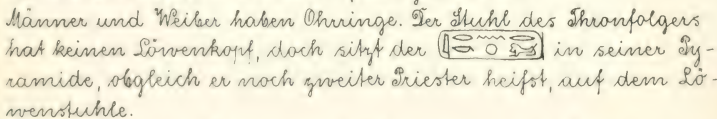 Männer und Weiber haben Ohrringe. Der Stuhl des Thronfolgers
hat keinen Löwenkopf, doch sitzt der in seiner Py-
ramide, obgleich er noch zweiter Priester heifst, auf dem Lö-
wenstuhle.